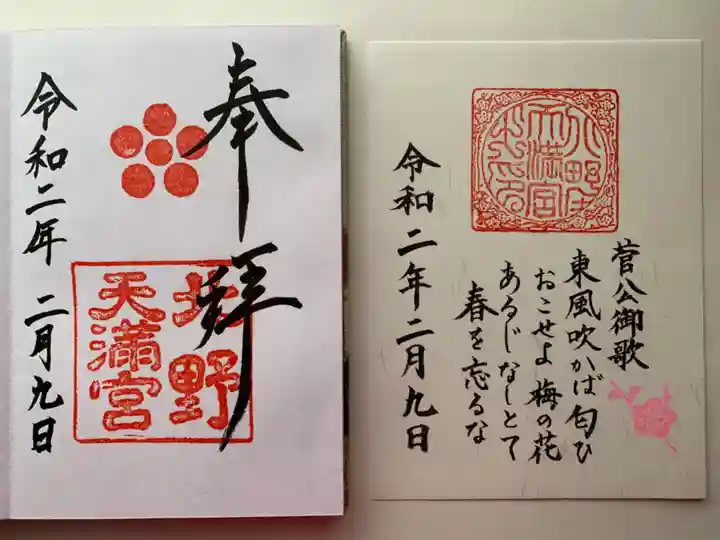 奉拝
北野
天満宮
令和二年 二月九日
北野天満宮
菅公御歌
東風吹かば匂ひ
おこせよ梅の花
あるじなしとて
春を忘るな
令和二年二月九日